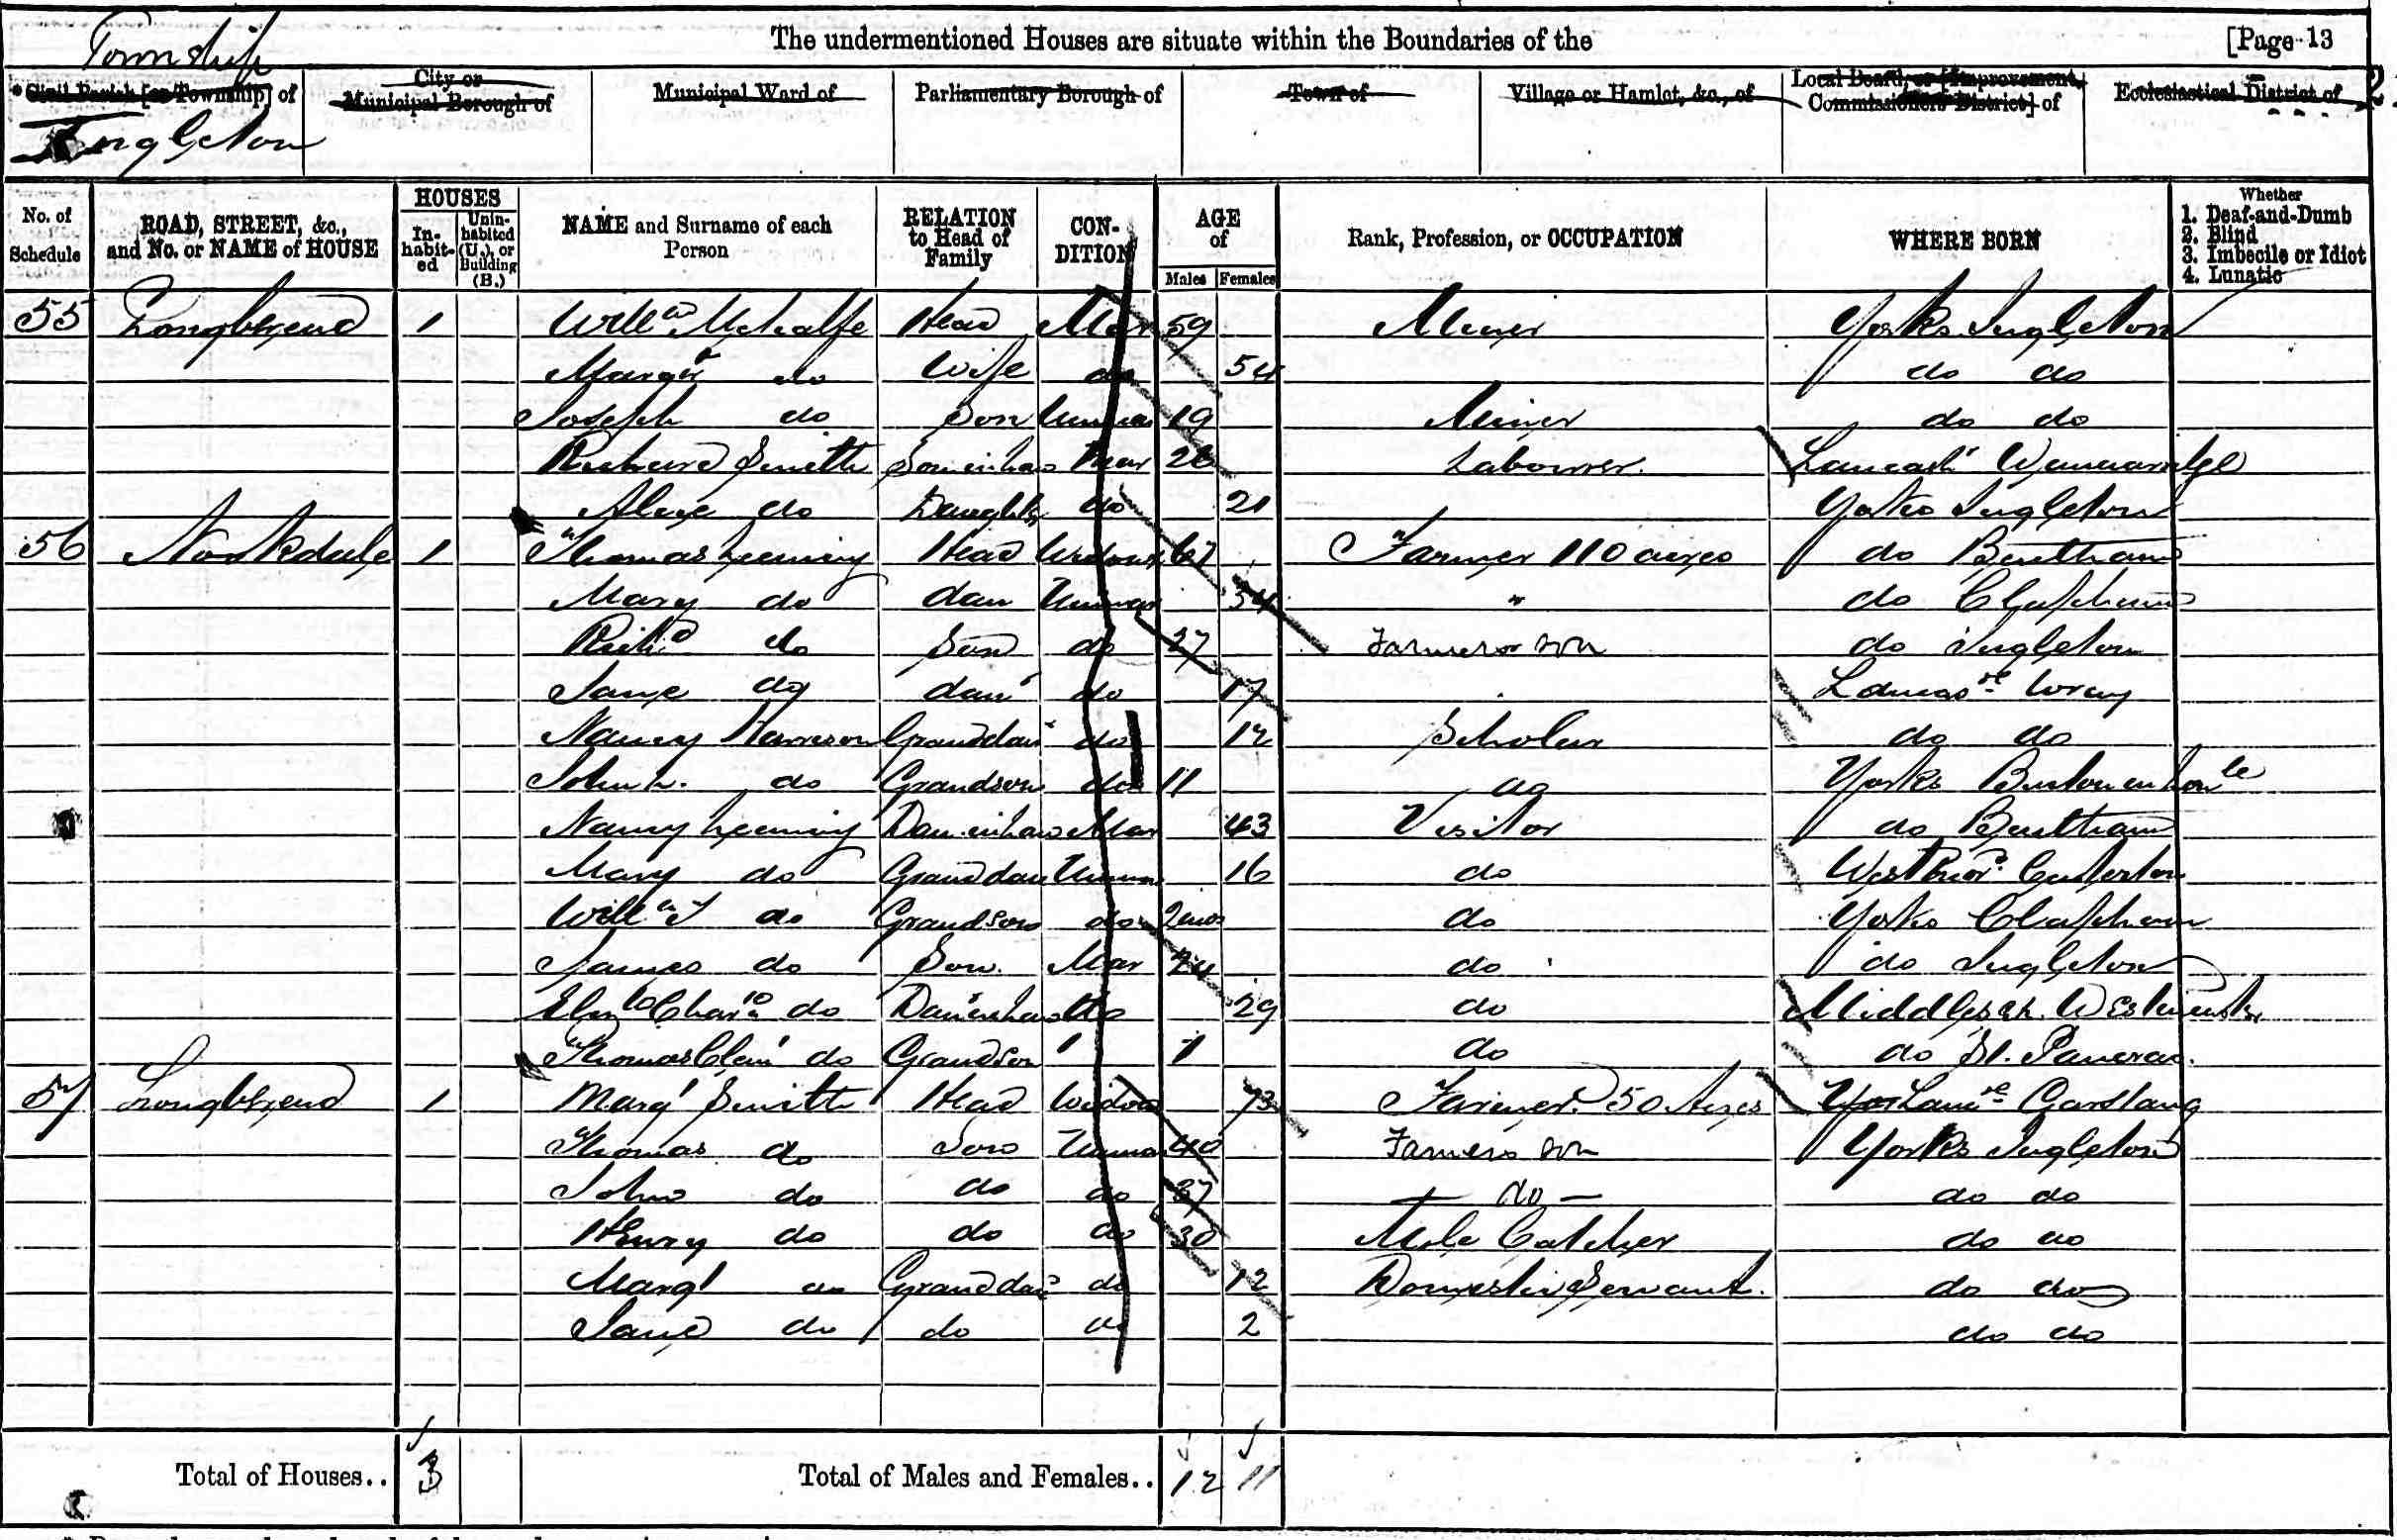 Township
The undermentioned Houses are situate within the Boundaries of the [Page 13
Civil Parish [or Township] of City or Municipal Borough of Municipal Ward of Parliamentary Borough of Town of Village or Hamlet, &c., of Local Board, or [Improvement Commissioners District] of Ecclesiastical District of
Ingleton
No. of Schedule ROAD, STREET, &c., and No. or NAME of HOUSE HOUSES Inhabited Uninhabited (U.), or Building (B.) NAME and Surname of each Person RELATION to Head of Family CONDITION AGE of Males Females Rank, Profession, or OCCUPATION WHERE BORN Whether 1. Deaf-and-Dumb 2. Blind 3. Imbecile or Idiot 4. Lunatic
55 1 Willm Metcalfe Head Mar 59 Miner Yorks Ingleton
Margt do Wife do 54 do do
Joseph do Son Unmar 19 Miner do do
Richard Smith Son in law Mar 26 Labourer Lancash
Alice do Daughter do 21 Yorks Ingleton
56 1 Thomas Leeming Head Widower 67 Farmer 110 acres do Bentham
Mary do dau Unmar 34 " do Clapham
Richd do Son do 27 Farmers son do Ingleton
Jane do dau do 17 Lancasre Wray
Nancy Harrison Granddau do 12 Scholar do do
John L. do Grandson do 11 do Yorks
Nancy Leeming Dau.inlaw Mar 43 Visitor do Bentham
Mary do Granddau Unmar 16 do Westmord Casterton
Willm T do Grandson do 2mos do Yorks Clapham
James do Son. Mar 24 do do Ingleton
do Dauinlaw do 29 do Middlesex Westminster
Thomas Clem do Grandson 1 do do St. Pancras.
57 1 Margt Smith Head Widow 73 Farmer 50 Acres Lancre Garstang
Thomas do Son Unmar 40 Farmers son Yorks Ingleton
John do do do 37 — do — do do
Henry do do do 30 Mole Catcher do do
Margt do Granddau do 12 Domestic Servant. do do
Jane do do do 2 do do
Total of Houses.. 3 Total of Males and Females.. 12 11